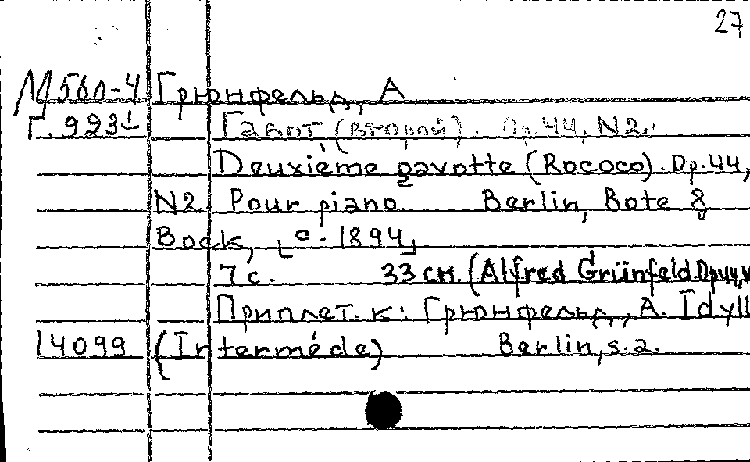 27
М560-4 Грюнфельд, А
Г. 923 Гавот (второй). Op. 44, N2.
Deuxième gavotte (Rococo). Op. 44,
N2. Pour piano. Berlin, Bote &
Bock, [c. 1894]
7 с. 33 см. (Alfred Grünfeld. Op 44,
Приплет. к: Грюнфельд, А. Idyll
14099 (Intermède) Berlin, s.a.